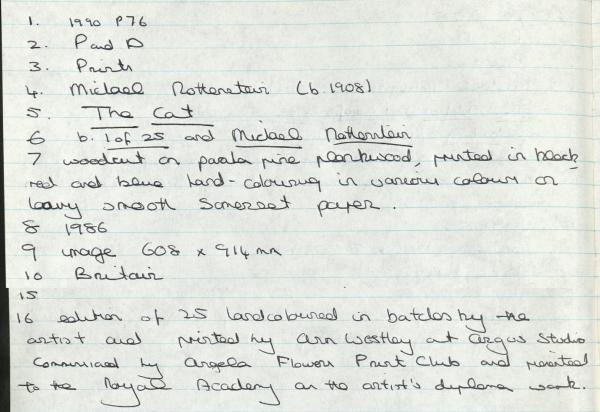 1. 1990 P76
2. P and D
3. Prints
4. Michael Rothenstein (b. 1908)
5. The Cat
6 b. 1 of 25 and Michael Rothenstein
7 woodcut on parala pine plankwood, printed in black
red and blue hand-colouring in various colours on
heavy smooth Somerset paper.
8 1986
9 image 608 x 914 mm
10 Britain
15
16 edition of 25 handcoloured in batches by the
artist and printed by Ann Westley at Argus Studio
Commissioned by Angela Flowers Print Club and presented
to the Royal Academy as the artist's diploma work.